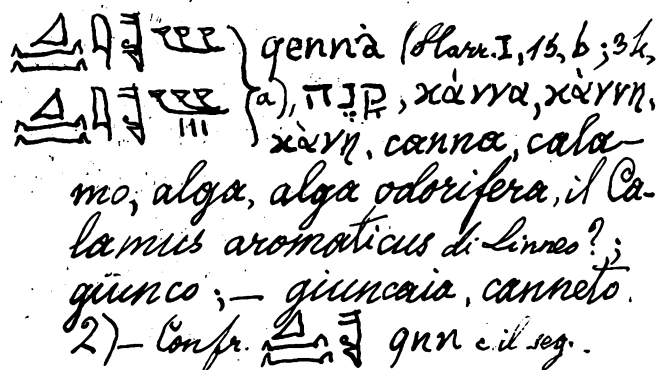 qennà (Harr. I, 15, b; 3h,
a), קָנֶה, κάννα, κάννη,
κάνη, canna, cala-
mo, alga, alga odorifera, il Ca-
lamus aromaticus di Linneo?;
giunco; — giuncaia, canneto.
2) — Confr. qnn e il seg.